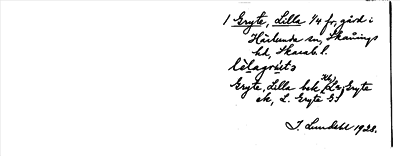 1 Gryte, Lilla 1/4 fr, gård i
Härlunda sn, Skånings
hd, Skarab. l.
Gryte, Lilla bek. Gryte
ek, L. Gryte G:
J. Lundahl 1928.